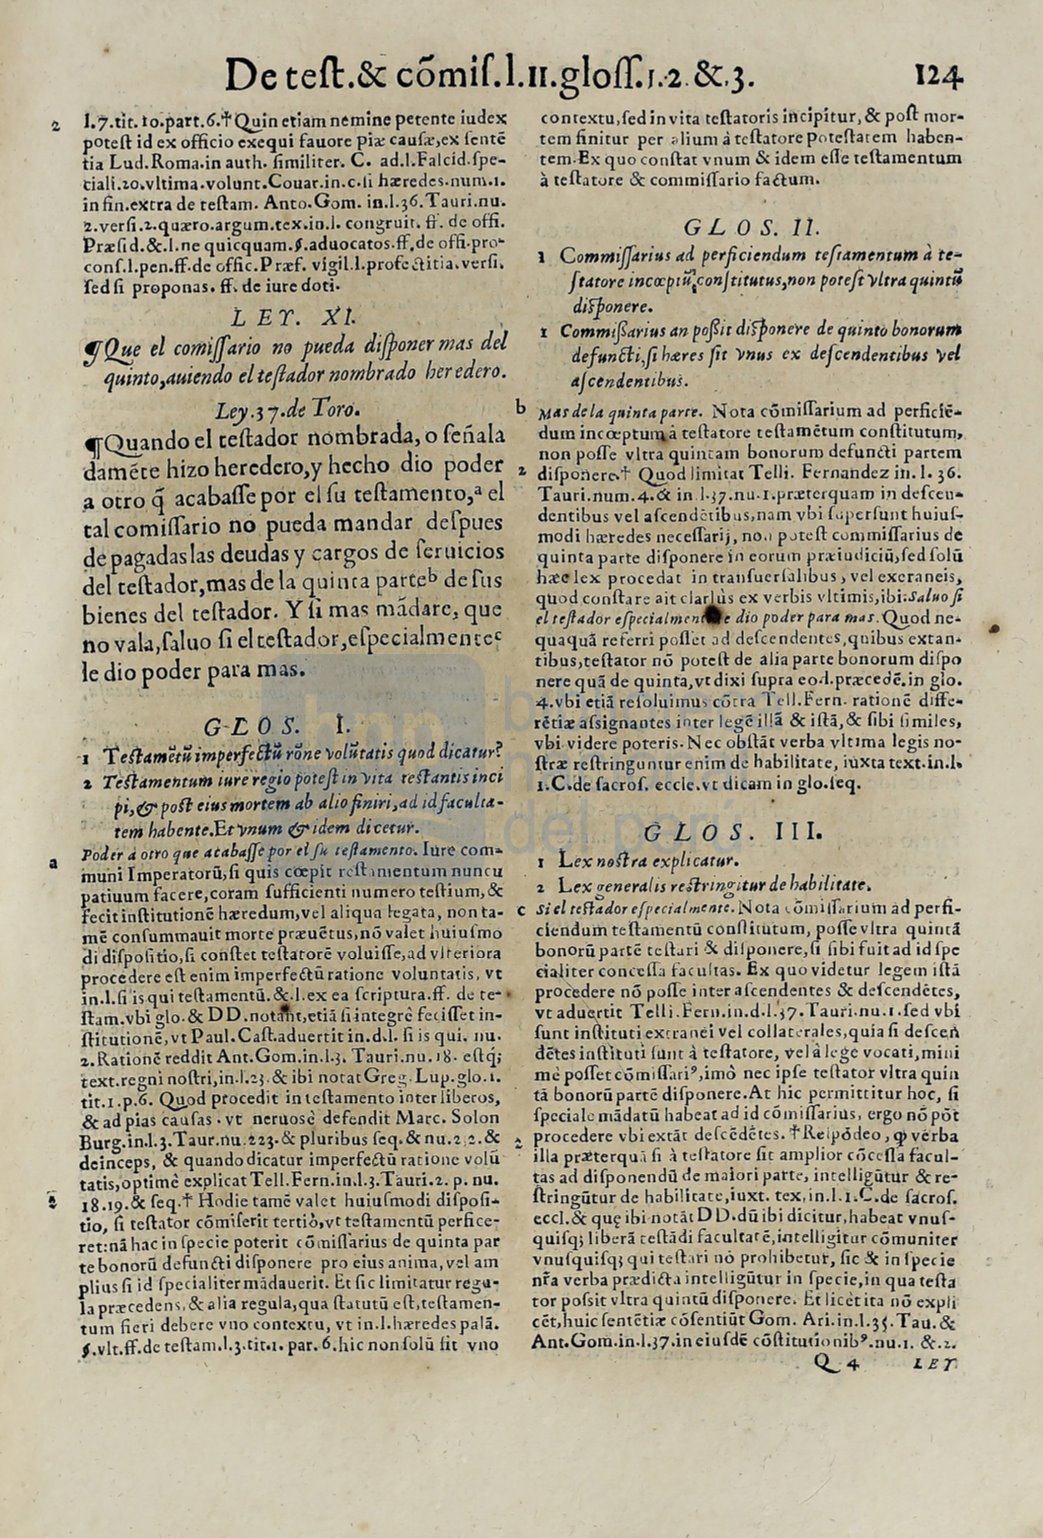 De test.& cõmis.l.11.gloss.1.2.&.3.
124
2 l.7.tit.10.part.6.†Quin etiam nemine petente iudex
potest id ex officio exequi fauore piæ causæ,ex sentẽ
tia Lud.Roma.in auth. similiter. C. ad.l.Falcid.spe-
ciali.20.vltima.volunt.Couar.in.c.si hæredes.num.1.
in fin.extra de testam. Anto.Gom. in.l.36.Tauri.nu.
2.versi.2.quæro.argum.tex.in.l. congruit. ff. de offi.
Præsid.&.l.ne quicquam.§.aduocatos.ff,de offi.pro-
cons.l.pen.ff.de offic.Præf. vigil.l.profectitia.versi.
sed si proponas. ff. de iure doti.
LET. XI.
¶Que el comissario no pueda disponer mas del
quinto,auiendo el testador nombrado heredero.
Ley.37.de Toro.
¶Quando el testador nombrada,o señala
damẽte hizo heredero,y hecho dio poder
a otro q̃ acabasse por el su testamento,ª el
tal comissario no pueda mandar despues
de pagadas las deudas y cargos de seruicios
del testador,mas de la quinta parteᵇ de sus
bienes del testador. Y si mas mãdare, que
no vala,saluo si el testador,especialmenteᶜ
le dio poder para mas.
GLOS. I.
1 Testamẽtũ imperfectũ rõne volũtatis quod dicatur?
2 Testamentum iure regio potest in vita testantis inci
pi,& post eius mortem ab alio finiri,ad id faculta-
tem habente.Et vnum & idem dicetur.
a Poder a otro que acabasse por el su testamento. Iure com-
muni Imperatorũ,si quis cœpit testamentum nuncu
patiuum facere,coram sufficienti numero testium,&
fecit institutionẽ hæredum,vel aliqua legata, non ta-
mẽ consummauit morte præuẽtus,nõ valet huiusmo
di dispositio,si constet testatorẽ voluisse,ad vlteriora
procedere est enim imperfectũ ratione voluntatis, vt
in.l.si is qui testamentũ.&.l.ex ea scriptura.ff. de te-
stam.vbi glo.& DD.notant,etiã si integrẽ fecisset in-
stitutionẽ,vt Paul.Cast.aduertit in.d.l. si is qui. nu.
2.Rationẽ reddit Ant.Gom.in.l.3. Tauri.nu.18. estq;
text.regni nostri,in.l.23.& ibi notat Greg.Lup.glo.1.
tit.1.p.6. Quod procedit in testamento inter liberos,
& ad pias causas . vt neruosè defendit Marc. Solon
Burg.in.l.3.Taur.nu.223.& pluribus seq.& nu.2 2.&
deinceps, & quando dicatur imperfectũ ratione volũ
tatis,optimè explicat Tell.Fern.in.l.3.Tauri.2. p. nu.
2 18.19.& seq.† Hodie tamẽ valet huiusmodi disposi-
tio, si testator cõmiserit tertiò,vt testamentũ perfice-
ret:nã hac in specie poterit cõmissarius de quinta par
te bonorũ defuncti disponere pro eius anima,vel am
plius si id specialiter mãdauerit. Et sic limitatur regu-
la præcedens,& alia regula,qua statutũ est,testamen-
tum fieri debere vno contextu, vt in.l.hæredes palã.
§.vlt.ff.de testam.l.3.tit.1. par. 6.hic non solũ sit vno
contextu,sed in vita testatoris incipitur,& post mor-
tem finitur per alium à testatore potestatem haben-
tem.Ex quo constat vnum & idem esse testamentum
à testatore & commissario factum.
GLOS. II.
1 Commissarius ad perficiendum testamentum à te-
statore incœptũ,constitutus,non potest vltra quintũ
disponere.
1 Commissarius an possit disponere de quinto bonorum
defuncti,si hæres sit vnus ex descendentibus vel
ascendentibus.
b Mas de la quinta parte. Nota cõmissarium ad perficiẽ-
dum incœptum à testatore testamẽtum constitutum,
non posse vltra quintam bonorum defuncti partem
2 disponere.† Quod limitat Telli. Fernandez in. l. 36.
Tauri.num.4.& in l.37.nu.1.præterquam in descen-
dentibus vel ascendẽtibus,nam vbi supersunt huius-
modi hæredes necessarij, non potest commissarius de
quinta parte disponere in eorum præiudiciũ,sed solũ
hæc lex procedat in transuersalibus, vel extraneis,
quod constare ait clariùs ex verbis vltimis,ibi:Saluo si
el testador especialmente dio poder para mas.Quod ne-
quaquã referri posset ad descendentes,quibus extan-
tibus,testator nõ potest de alia parte bonorum dispo
nere quã de quinta,vt dixi supra eo.l.præcedẽ.in glo.
4.vbi etiã resoluimus cõtra Tell.Fern. rationẽ diffe-
rẽtiæ assignantes inter legẽ illã & istã,& sibi similes,
vbi videre poteris.Nec obstãt verba vltima legis no-
stræ restringuntur enim de habilitate, iuxta text.in.l.
1.C.de sacros. eccle.vt dicam in glo.seq.
GLOS. III.
1 Lex nostra explicatur.
2 Lex generalis restringitur de habilitate.
c Si el testador especialmente. Nota cõmissarium ad perfi-
ciendum testamentũ constitutum, posse vltra quintã
bonorũ partẽ testari & disponere,si sibi fuit ad id spe
cialiter concessa facultas. Ex quo videtur legem istã
procedere nõ posse inter ascendentes & descendẽtes,
vt aduertit Telli.Fern.in.d.l.37.Tauri.nu.1.sed vbi
sunt instituti extranei vel collaterales,quia si descen
dẽtes instituti sunt à testatore, vel à lege vocati,mini
mè posset cõmissari⁹,imò nec ipse testator vltra quin
tã bonorũ partẽ disponere.At hic permittitur hoc, si
speciale mãdatũ habeat ad id cõmissarius, ergo nõ põt
2 procedere vbi extãt descẽdẽtes. †Respõdeo, ꝙ verba
illa præterquã si à testatore sit amplior cõcessa facul-
tas ad disponendũ de maiori parte, intelligũtur & re-
stringũtur de habilitate,iuxt. tex, in.l.1.C.de sacros.
eccl.& quę ibi notãt DD.dũ ibi dicitur,habeat vnus-
quisq; liberã testãdi facultatẽ,intelligitur cõmuniter
vnusquisq; qui testari nõ prohibetur, sic & in specie
nr̃a verba prædicta intelligũtur in specie,in qua testa
tor possit vltra quintũ disponere. Et licèt ita nõ expli
cẽt,huic sentẽtiæ cõsentiũt Gom. Ari.in.l.35.Tau.&
Ant.Gom.in.l.37.in eiusdẽ cõstitutionib⁹.nu.1. &.2.
Q 4 LET